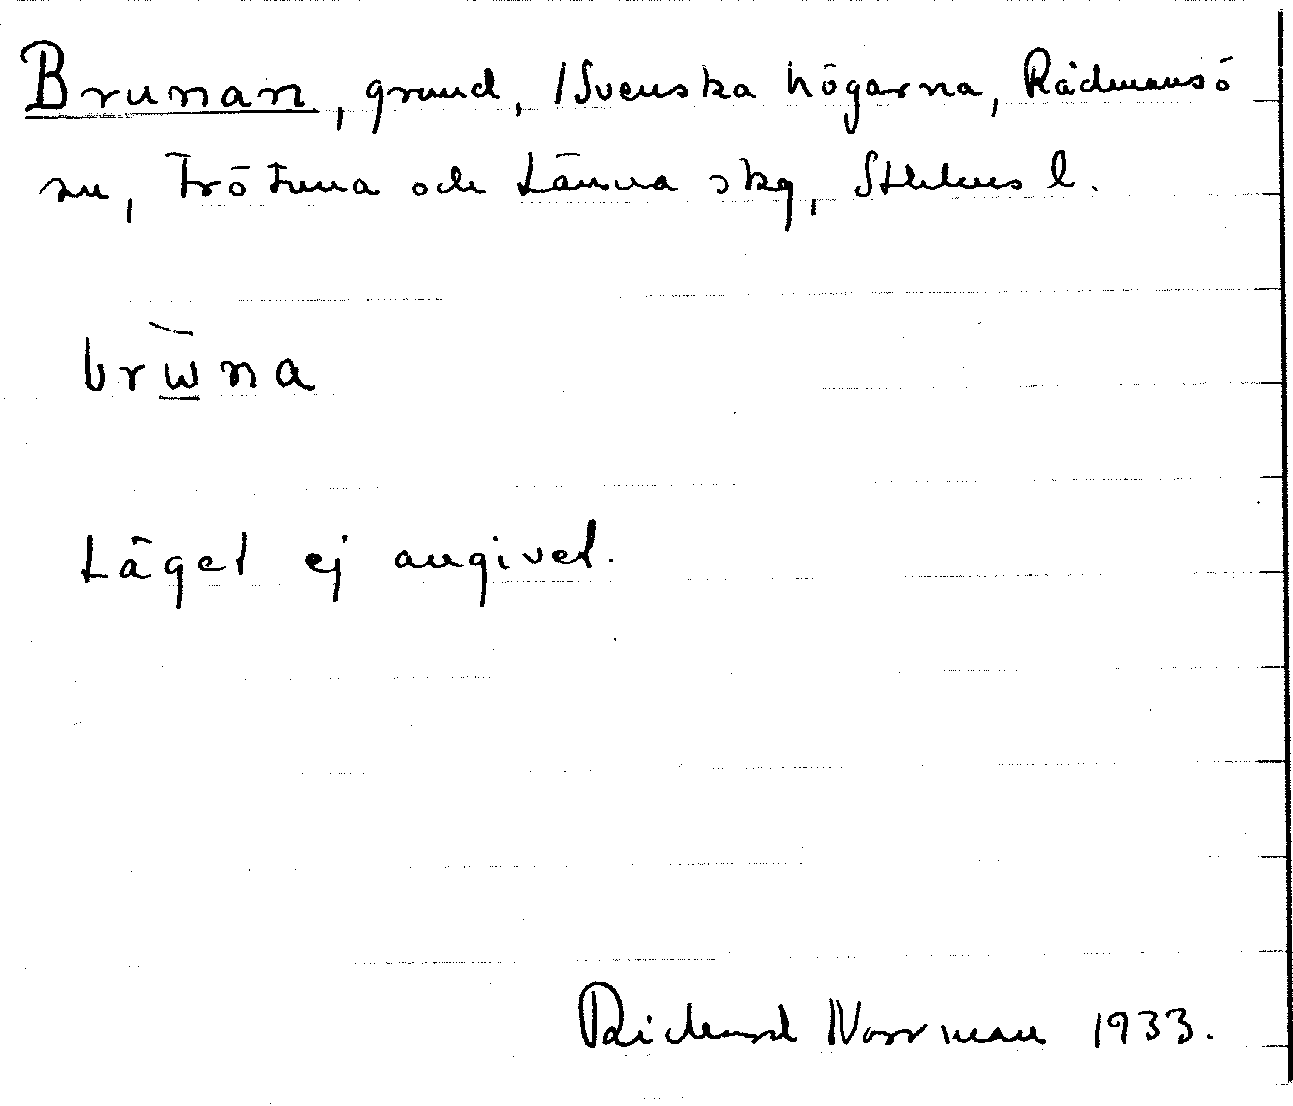 Brunan, grund, /Svenska högarna, Rådmansö
sn, Frötuna och Länna skg, Sthlms l.
brw̲na
Läget ej angivet.
Rickard Norrman 1933.